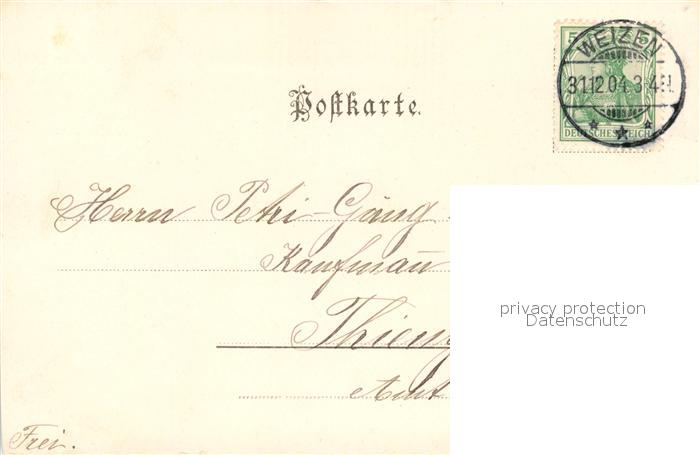 5 5
WEIZEN
31.12.04. 3-4N.
DEUTSCHES REICH
Postkarte.
Herrn Petri-Gäng
Kaufmann
Thieng
Amt
privacy protection
Datenschutz
Frei.